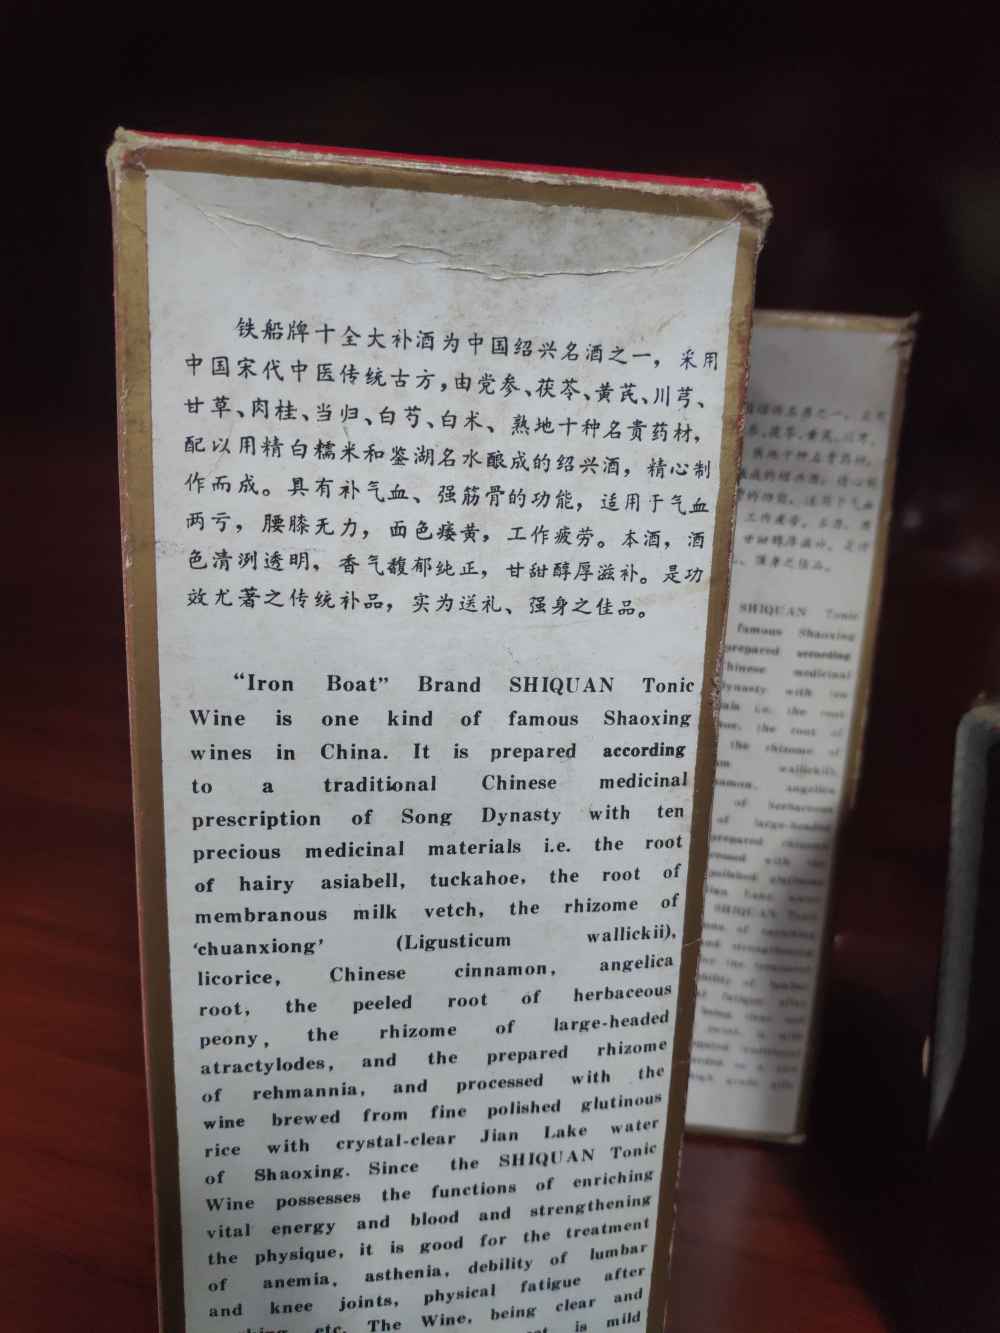 铁船牌十全大补酒为中国绍兴名酒之一，采用
中国宋代中医传统古方，由党参、茯苓、黄芪、川芎、
甘草、肉桂、当归、白芍、白术、熟地十种名贵药材，
配以用精白糯米和鉴湖名水酿成的绍兴酒，精心制
作而成。具有补气血、强筋骨的功能，适用于气血
两亏，腰膝无力，面色痿黄，工作疲劳。本酒，酒
色清洌透明，香气馥郁纯正，甘甜醇厚滋补。是功
效尤著之传统补品，实为送礼、强身之佳品。
“Iron Boat” Brand SHIQUAN Tonic
Wine is one kind of famous Shaoxing
wines in China. It is prepared according
to a traditional Chinese medicinal
prescription of Song Dynasty with ten
precious medicinal materials i.e. the root
of hairy asiabell, tuckahoe, the root of
membranous milk vetch, the rhizome of
‘chuanxiong’ (Ligusticum wallickii),
licorice, Chinese cinnamon, angelica
root, the peeled root of herbaceous
peony, the rhizome of large-headed
atractylodes, and the prepared rhizome
of rehmannia, and processed with the
wine brewed from fine polished glutinous
rice with crystal-clear Jian Lake water
of Shaoxing. Since the SHIQUAN Tonic
Wine possesses the functions of enriching
vital energy and blood and strengthening
the physique, it is good for the treatment
of anemia, asthenia, debility of lumbar
and knee joints, physical fatigue after
etc. The Wine, being clear and
is mild
SHIQUAN Tonic
famous Shaoxing
prepared according
medicinal
with ten
i.e. the root
the root of
the rhizome of
wallickii),
angelica
of herbaceous
of large-headed